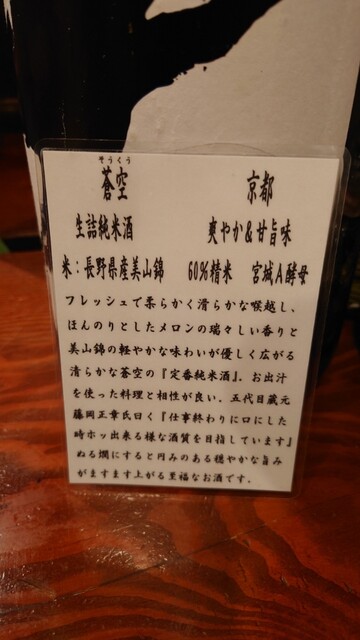 そうくう
蒼空 京都
生詰純米酒 爽やか&甘旨味
米:長野県産美山錦 60%精米 宮城A酵母
フレッシュで柔らかく滑らかな喉越し、
ほんのりとしたメロンの瑞々しい香りと
美山錦の軽やかな味わいが優しく広がる
清らかな蒼空の『定番純米酒』。お出汁
を使った料理と相性が良い。五代目蔵元
藤岡正章氏曰く『仕事終わりに口にした
時ホッ出来る様な酒質を目指しています』
ぬる燗にすると円みのある穏やかな旨み
がますます上がる至福なお酒です。